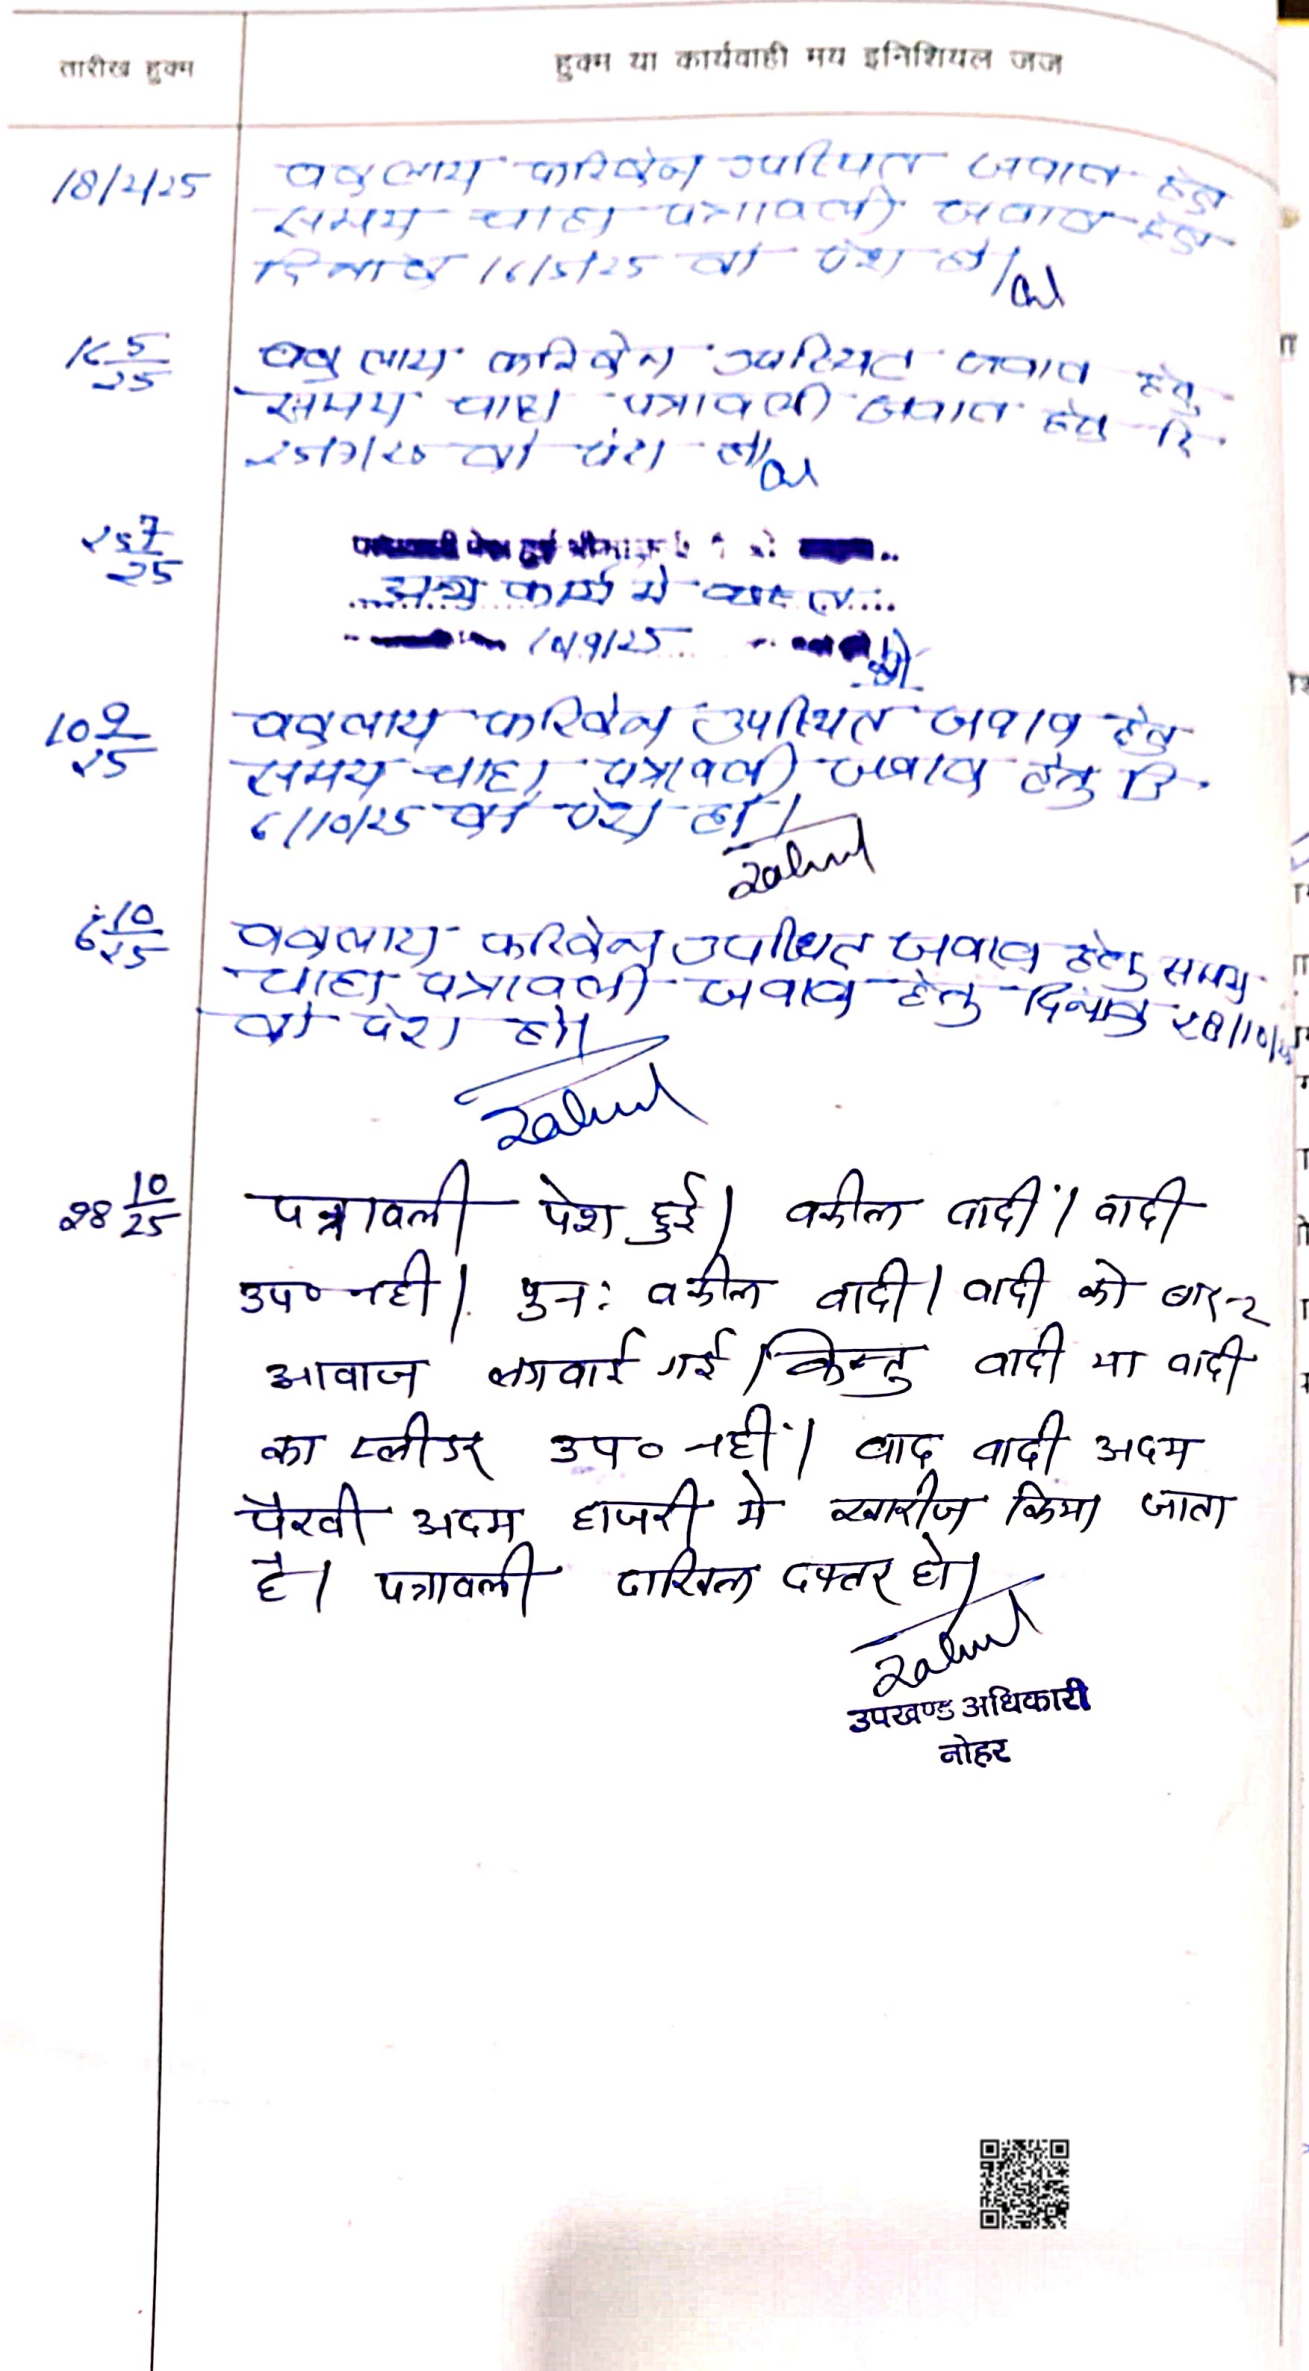 तारीख हुक्म
हुक्म या कार्यवाही मय इनिशियल जज
18/2/25
वकलाय फरिकेन उपस्थित जवाब हेतु
समय चाहा पत्रावली जवाब हेतु
दिनांक 16/5/25 को पेश हो/
16 5/25
वकलाय फरिकेन उपस्थित जवाब हेतु
समय चाहा पत्रावली जवाब हेतु दि.
25/7/25 को पेश हो/
25 7/25
अन्य कार्य में व्यस्त
10/9/25
10 9/25
वकलाय फरिकेन उपस्थित जवाब हेतु
समय चाहा पत्रावली जवाब हेतु दि.
6/10/25 को पेश हो/
6 10/25
वकलाय फरिकेन उपस्थित जवाब हेतु समय
चाहा पत्रावली जवाब हेतु दिनांक 28/10/25
को पेश हो।
28 10/25
पत्रावली पेश हुई। वकील वादीं। वादी
उप० नही। पुन: वकील वादी। वादी को बार-2
आवाज लगवाई गई। किन्तु वादी या वादी
का प्लीडर उप० नहीं। वाद वादी अदम
पैरवी अदम हाजरी मे खारीज किया जाता
है। पत्रावली दाखिल दफ्तर हो।
उपखण्ड अधिकारी
नोहर